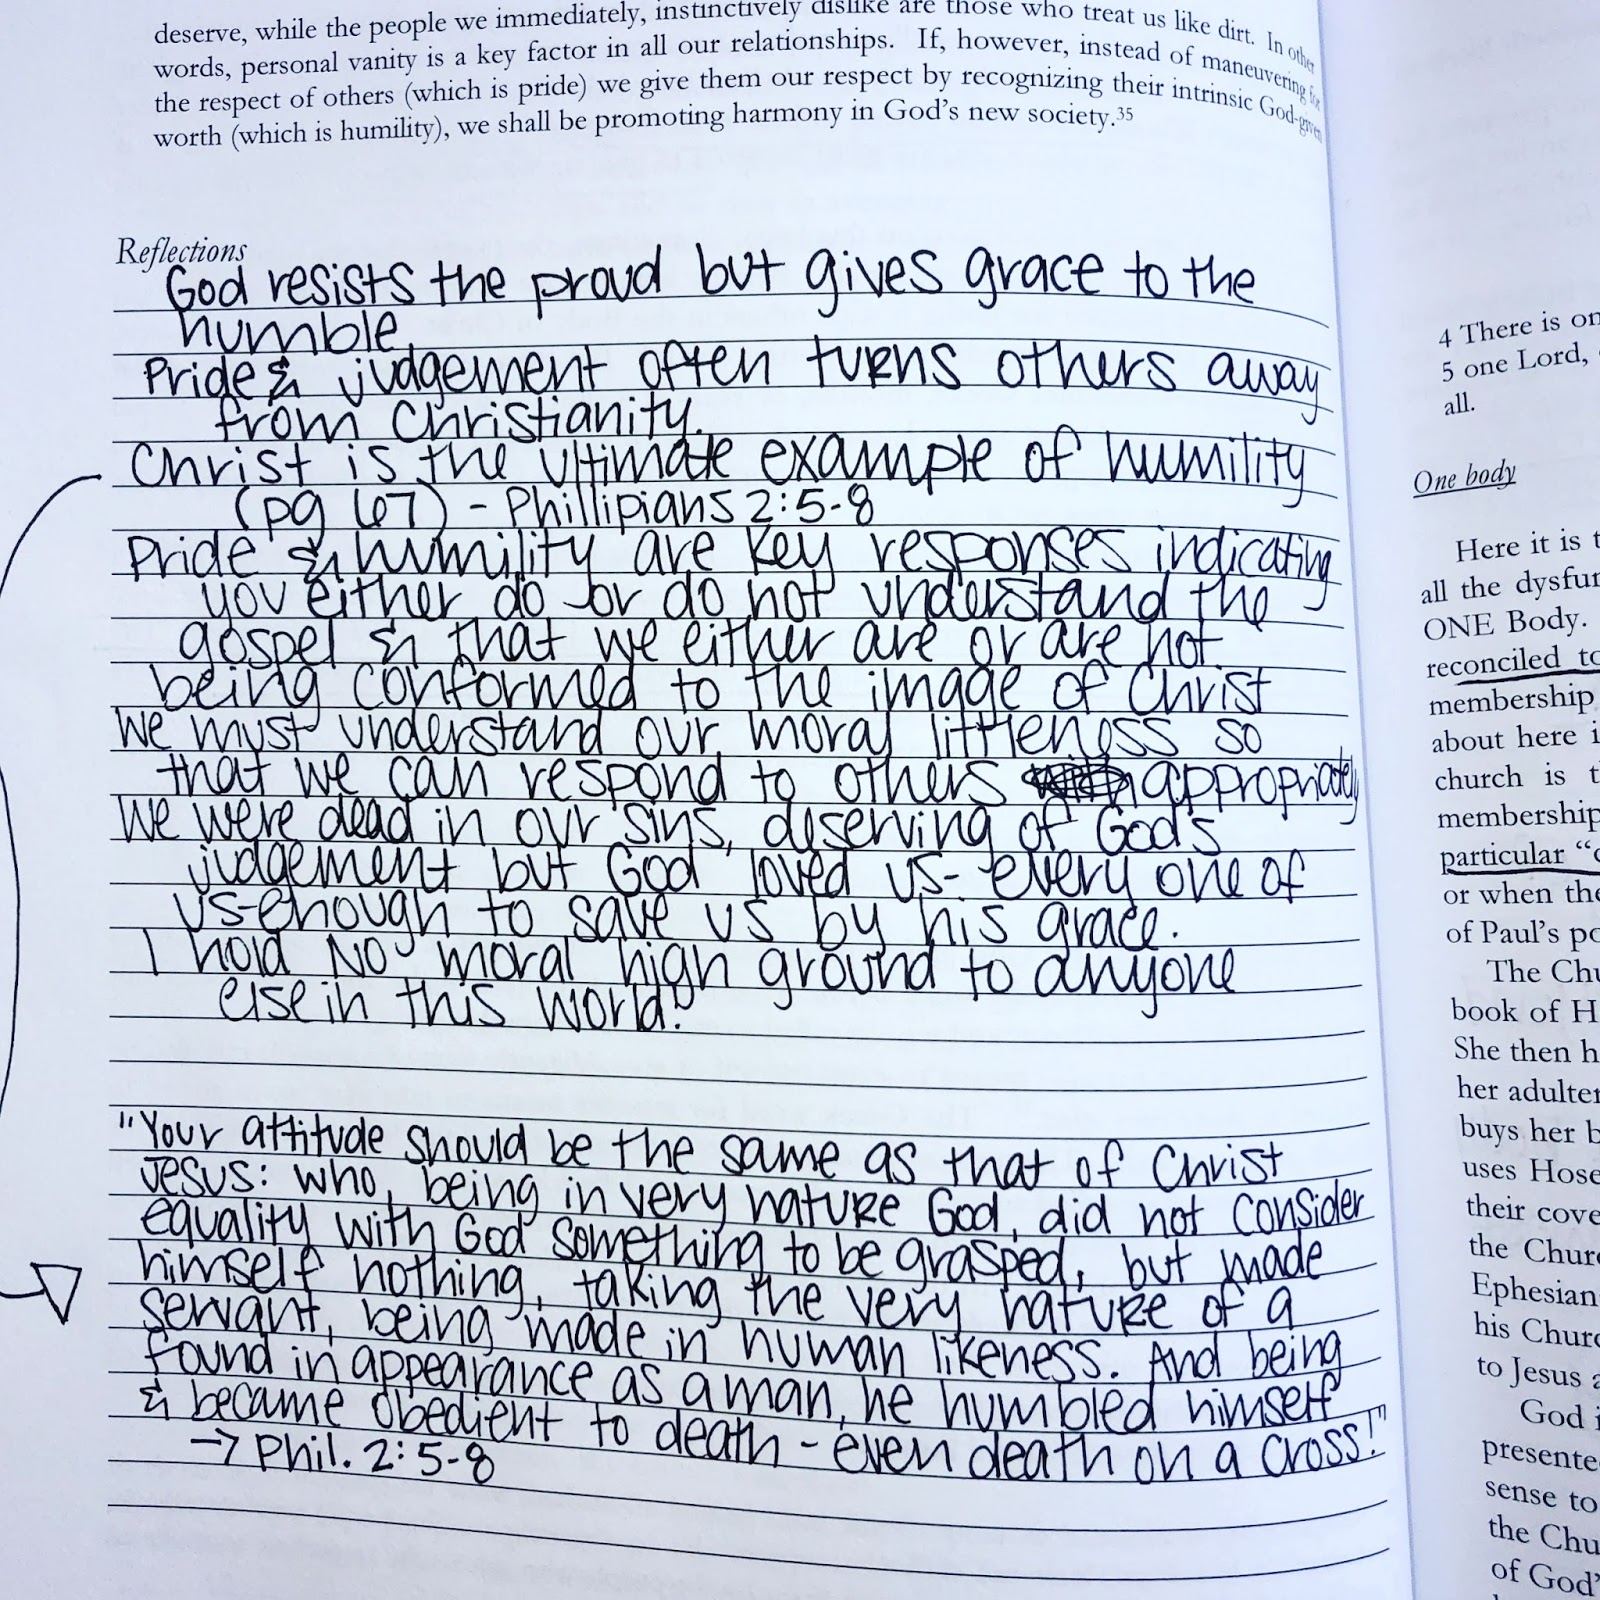 deserve, while the people we immediately, instinctively dislike are those who treat us like dirt. In other
words, personal vanity is a key factor in all our relationships. If, however, instead of maneuvering for
the respect of others (which is pride) we give them our respect by recognizing their intrinsic God-given
worth (which is humility), we shall be promoting harmony in God's new society.35
Reflections
God resists the proud but gives grace to the
humble.
Pride & judgement often turns others away
from Christianity.
Christ is the ultimate example of humility
(pg 67) - Phillipians 2:5-8
Pride & humility are key responses indicating
you either do or do not understand the
gospel & that we either are or are not
being conformed to the image of Christ
We must understand our moral littleness so
that we can respond to others appropriately
We were dead in our sins, deserving of God's
judgement but God loved us- every one of
us-enough to save us by his grace.
I hold NO moral high ground to anyone
else in this world!
"Your attitude should be the same as that of Christ
Jesus: who, being in very nature God, did not consider
equality with God something to be grasped, but made
himself nothing, taking the very nature of a
servant, being made in human likeness. And being
found in appearance as a man, he humbled himself
& became obedient to death - even death on a cross!"
→ Phil. 2:5-8
4 There is on
5 one Lord,
all.
One body
Here it is
all the dysfun
ONE Body.
reconciled to
membership
about here i
church is t
membership
particular "
or when the
of Paul's po
The Chu
book of H
She then h
her adulter
buys her b
uses Hose
their cove
the Churc
Ephesian
his Churc
to Jesus a
God i
presente
sense to
the Chu
of God'